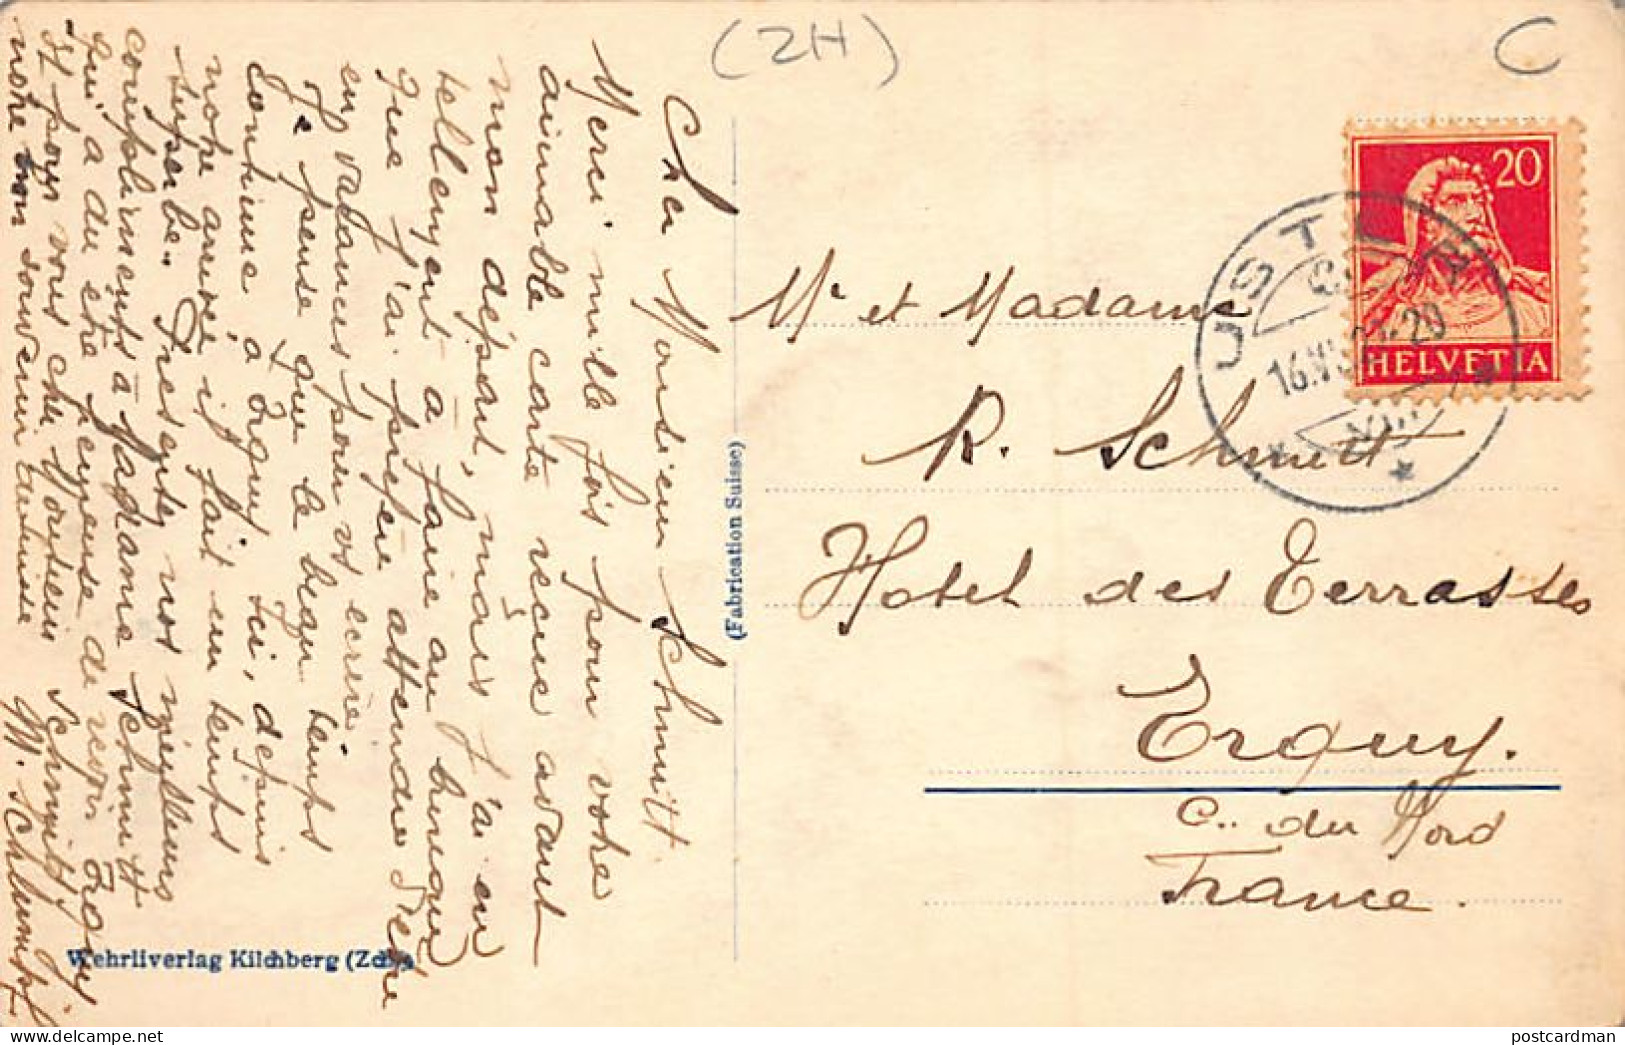 (2H)
C
20
HELVETIA
USTER
16.VI
20
VIII
Mr et Madame
R. Schmitt
Hotel des Terrasses
Erquy.
C.. du Nord
France.
(Fabrication Suisse)
Wehrliverlag Kilchberg (Zch)
Cher Monsieur Schmitt.
Merci mille fois pour votre
aimable carte reçue avant
mon départ, mais j'ai eu
tellement à faire au bureau
que j'ai préféré attendre d'être
en vacances pour vs ecrire.
Je pense que le beau temps
continue à Erquy. Ici, depuis
notre arrivée il fait un temps
superbe. Presentez nos meilleurs
compliments à Madame Schmitt
qui a du etre heureuse de revoir Erquy
Et pour vous cher Monsieur Schmitt,
notre bon souvenir
M.
postcardman